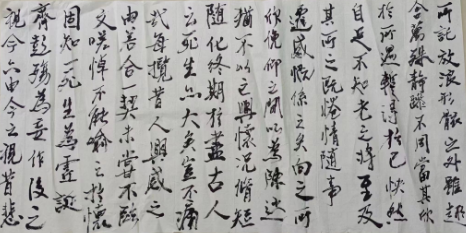 所託放浪形骸之外雖趣
舍萬殊靜躁不同當其欣
於所遇暫得於己怏然
自足不知老之將至及
其所之既惓情隨事
遷感慨係之矣向之所
欣俛仰之間以為陳迹
猶不以之興懷況脩短
隨化終期於盡古人
云死生亦大矣豈不痛
哉每攬昔人興感之
由若合一契未嘗不臨
文嗟悼不能喻之於懷
固知一死生為虛誕
齊彭殤為妄作後之
視今亦由今之視昔悲